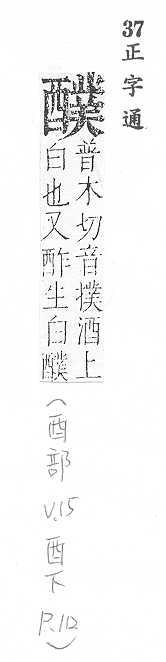 37正字通
醭
普木切音撲酒上
白也又酢生白醭
(酉部 V.15 酉下 P.12)